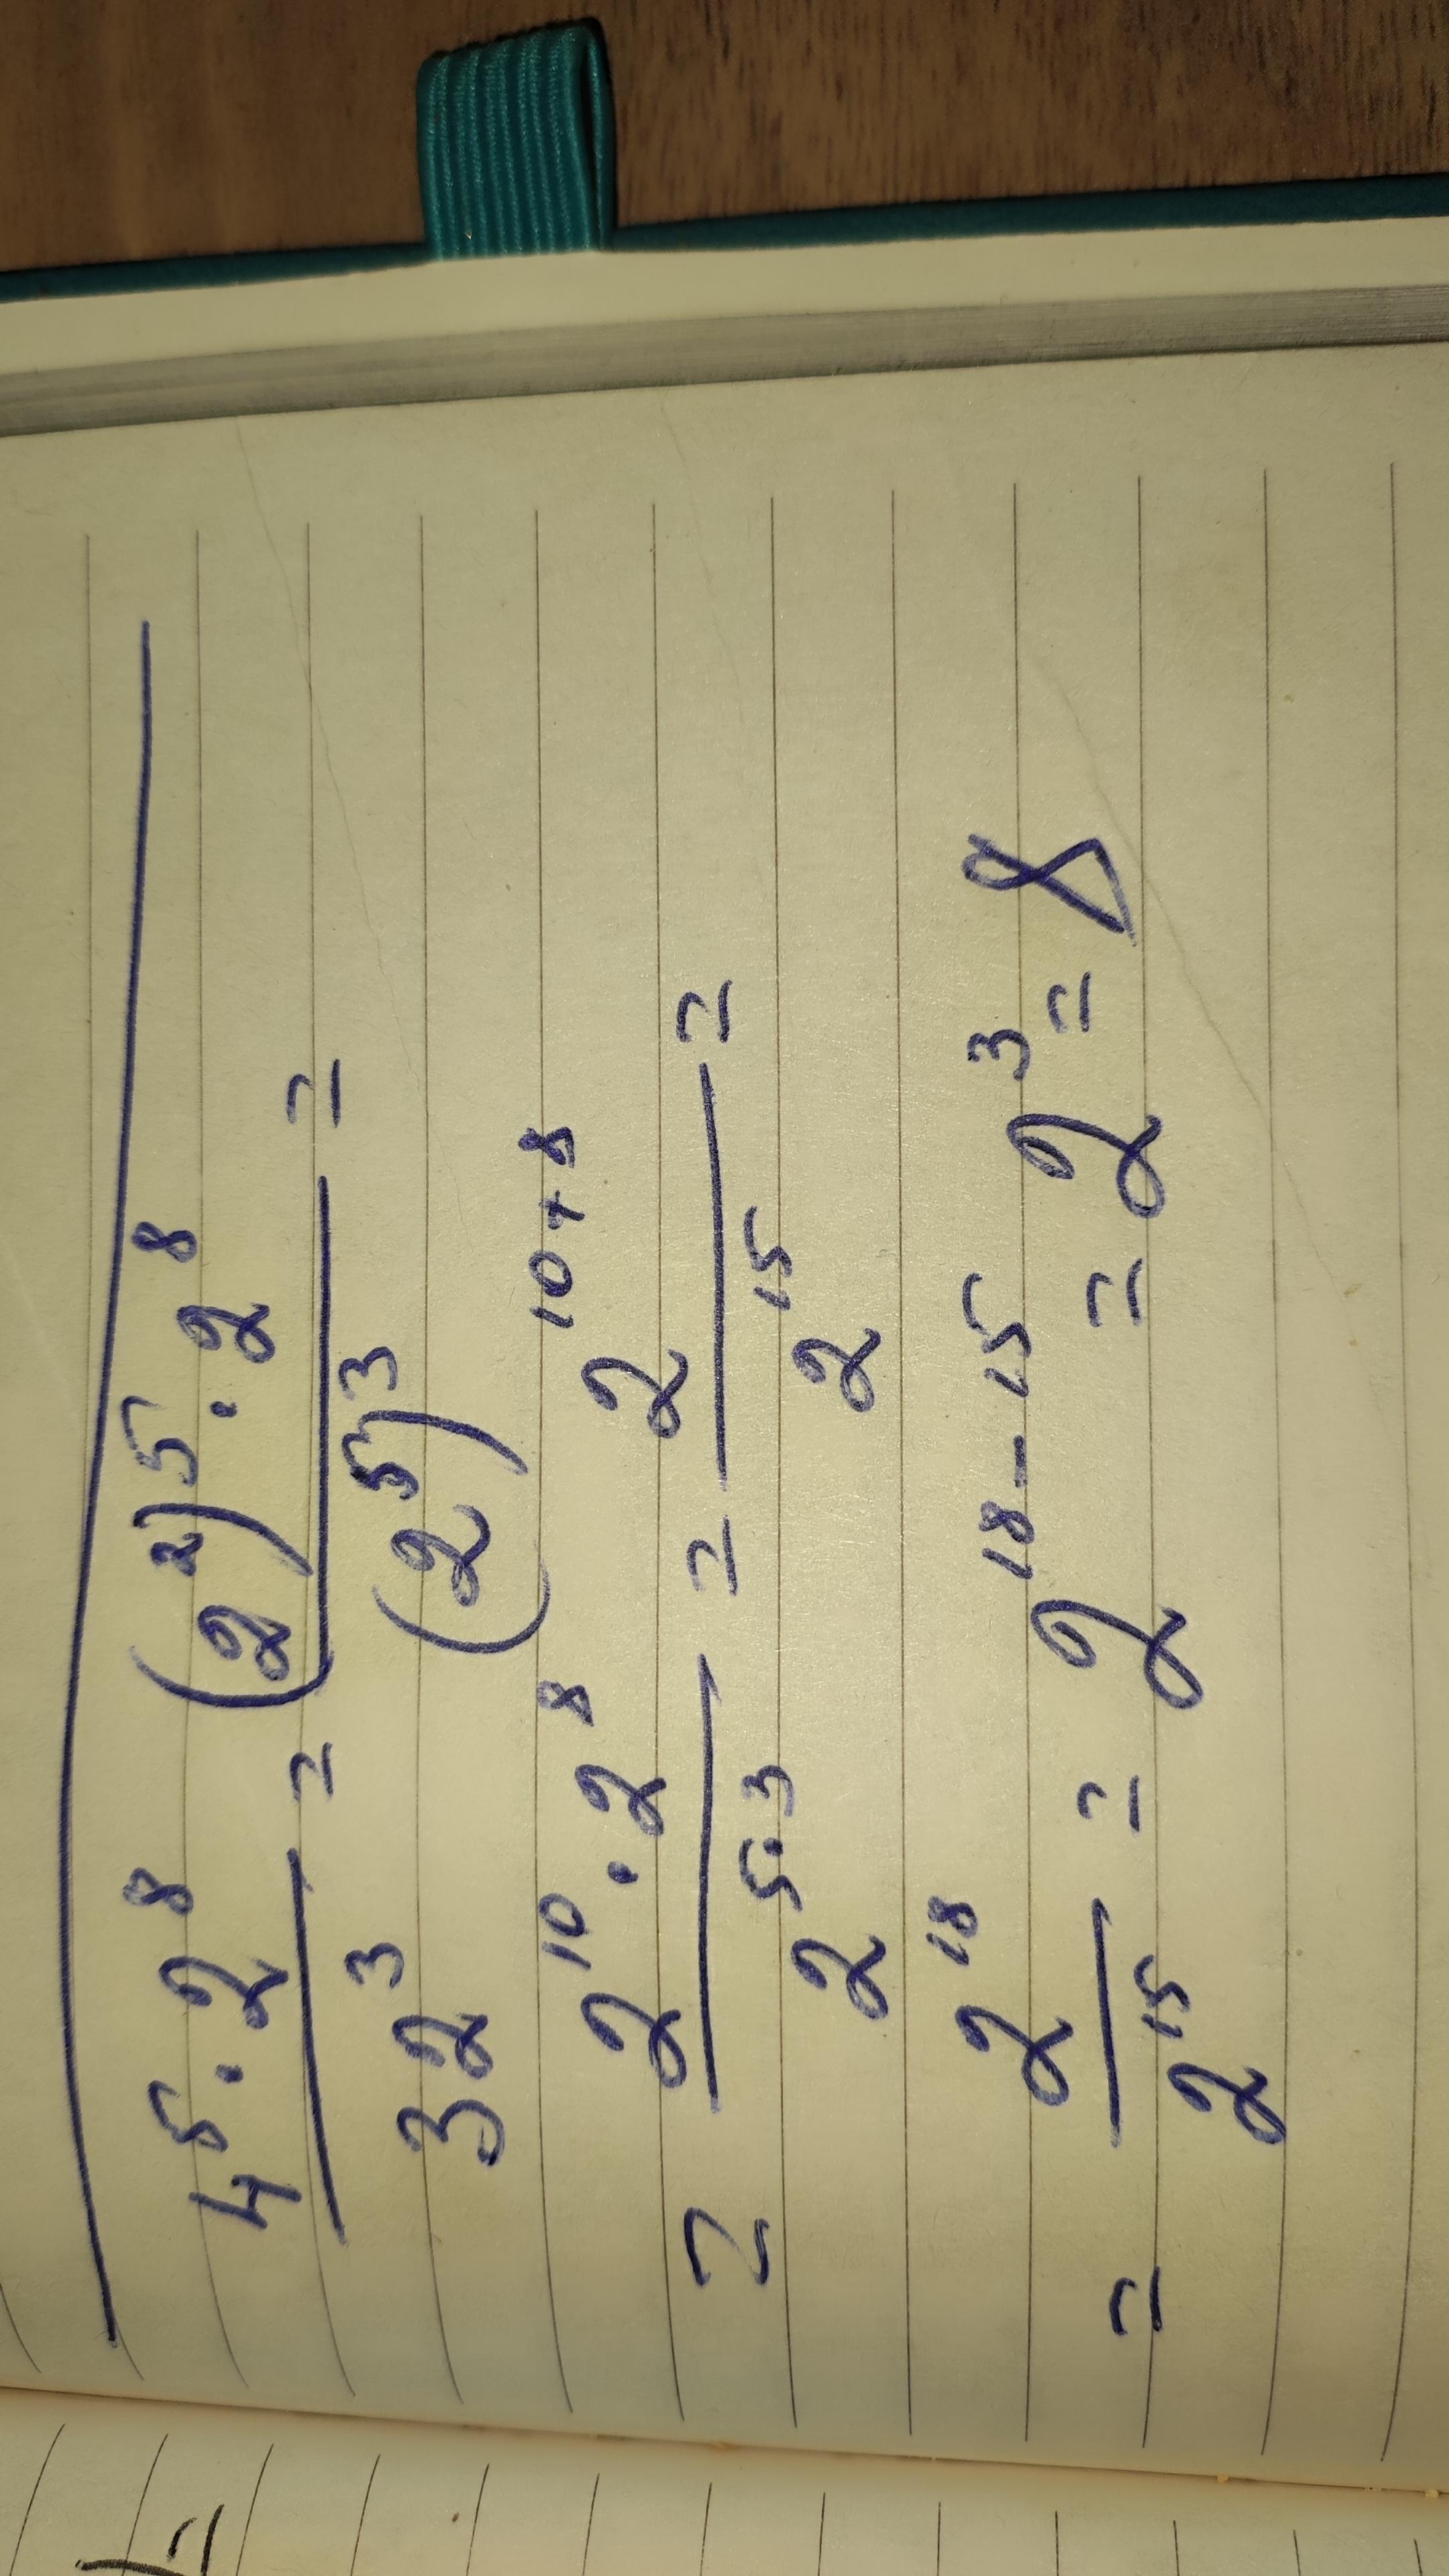 4⁵·2⁸/32³ = (2²)⁵·2⁸/(2⁵)³ =
= 2¹⁰·2⁸/2⁵·³ = 2¹⁰⁺⁸/2¹⁵ =
= 2¹⁸/2¹⁵ = 2¹⁸⁻¹⁵ = 2³ = 8